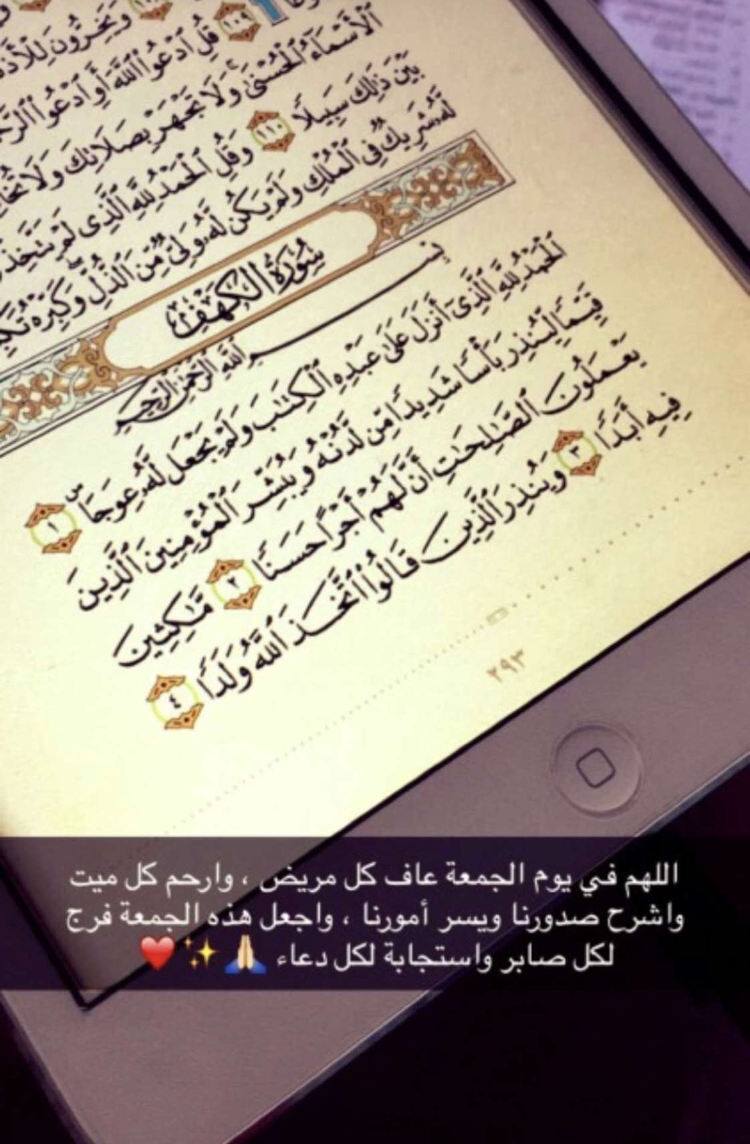 ١٠٩
قُلِ ٱدْعُوا۟ ٱللَّهَ أَوِ ٱدْعُوا۟
ٱلْأَسْمَآءُ ٱلْحُسْنَىٰ ۚ وَلَا تَجْهَرْ بِصَلَاتِكَ وَلَا
بَيْنَ ذَٰلِكَ سَبِيلًا ١١٠ وَقُلِ ٱلْحَمْدُ لِلَّهِ ٱلَّذِى لَمْ يَتَّخِذْ
لَّهُۥ شَرِيكٌ فِى ٱلْمُلْكِ وَلَمْ يَكُن لَّهُۥ وَلِىٌّ مِّنَ ٱلذُّلِّ ۖ وَكَبِّرْهُ
سُورَةُ الكَهْفِ
بِسْمِ ٱللَّهِ ٱلرَّحْمَٰنِ ٱلرَّحِيمِ
ٱلْحَمْدُ لِلَّهِ ٱلَّذِىٓ أَنزَلَ عَلَىٰ عَبْدِهِ ٱلْكِتَٰبَ وَلَمْ يَجْعَل لَّهُۥ عِوَجَا ۜ ١
قَيِّمًا لِّيُنذِرَ بَأْسًا شَدِيدًا مِّن لَّدُنْهُ وَيُبَشِّرَ ٱلْمُؤْمِنِينَ ٱلَّذِينَ
يَعْمَلُونَ ٱلصَّٰلِحَٰتِ أَنَّ لَهُمْ أَجْرًا حَسَنًا ٢ مَّٰكِثِينَ
فِيهِ أَبَدًا ٣ وَيُنذِرَ ٱلَّذِينَ قَالُوا۟ ٱتَّخَذَ ٱللَّهُ وَلَدًا ٤
٢٩٣
اللهم في يوم الجمعة عاف كل مريض ، وارحم كل ميت
واشرح صدورنا ويسر أمورنا ، واجعل هذه الجمعة فرج
لكل صابر واستجابة لكل دعاء 🙏🏼✨❤️